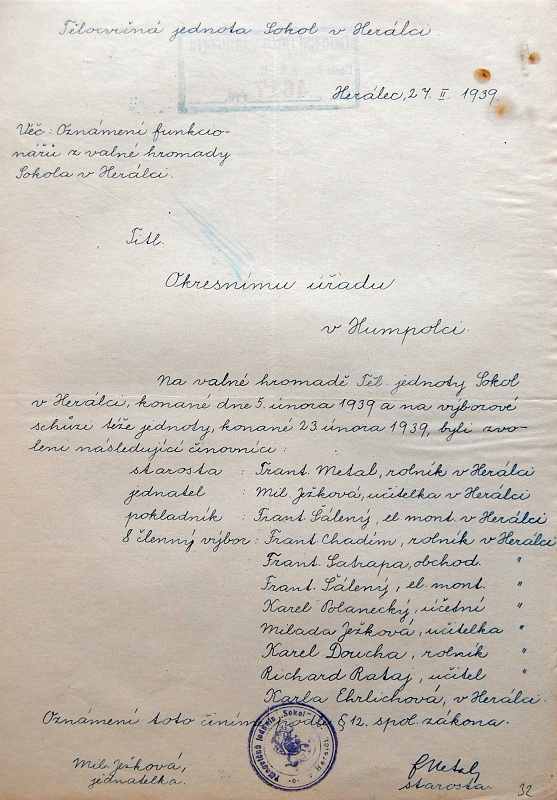 Tělocvičná jednota Sokol v Herálci.
Herálec, 27. II. 1939.
Věc: Oznámení funkcio-
nářů z valné hromady
Sokola v Herálci.
Titl.
Okresnímu úřadu
v Humpolci.
Na valné hromadě Těl. jednoty Sokol
v Herálci, konané dne 5. února 1939 a na výborové
schůzi téže jednoty, konané 23 února 1939, byli zvo-
leni následující činovníci:
starosta : Frant. Metal, rolník v Herálci
jednatel : Mil. Ježková, učitelka v Herálci
pokladník : Frant. Šálený, el. mont. v Herálci
8 členný výbor: Frant Chadim, rolník v Herálci
Frant. Satrapa, obchod. "
Frant. Šálený, el. mont. "
Karel Polanecký, účetní "
Milada Ježková, učitelka "
Karel Doucha, rolník "
Richard Rataj, učitel "
Karla Ehrlichová, v Herálci.
Oznámení toto činíme podle § 12. spol. zákona.
Tělocvičná jednota "Sokol"
Mil. Ježková,
jednatelka.
F Metal
starosta.
32